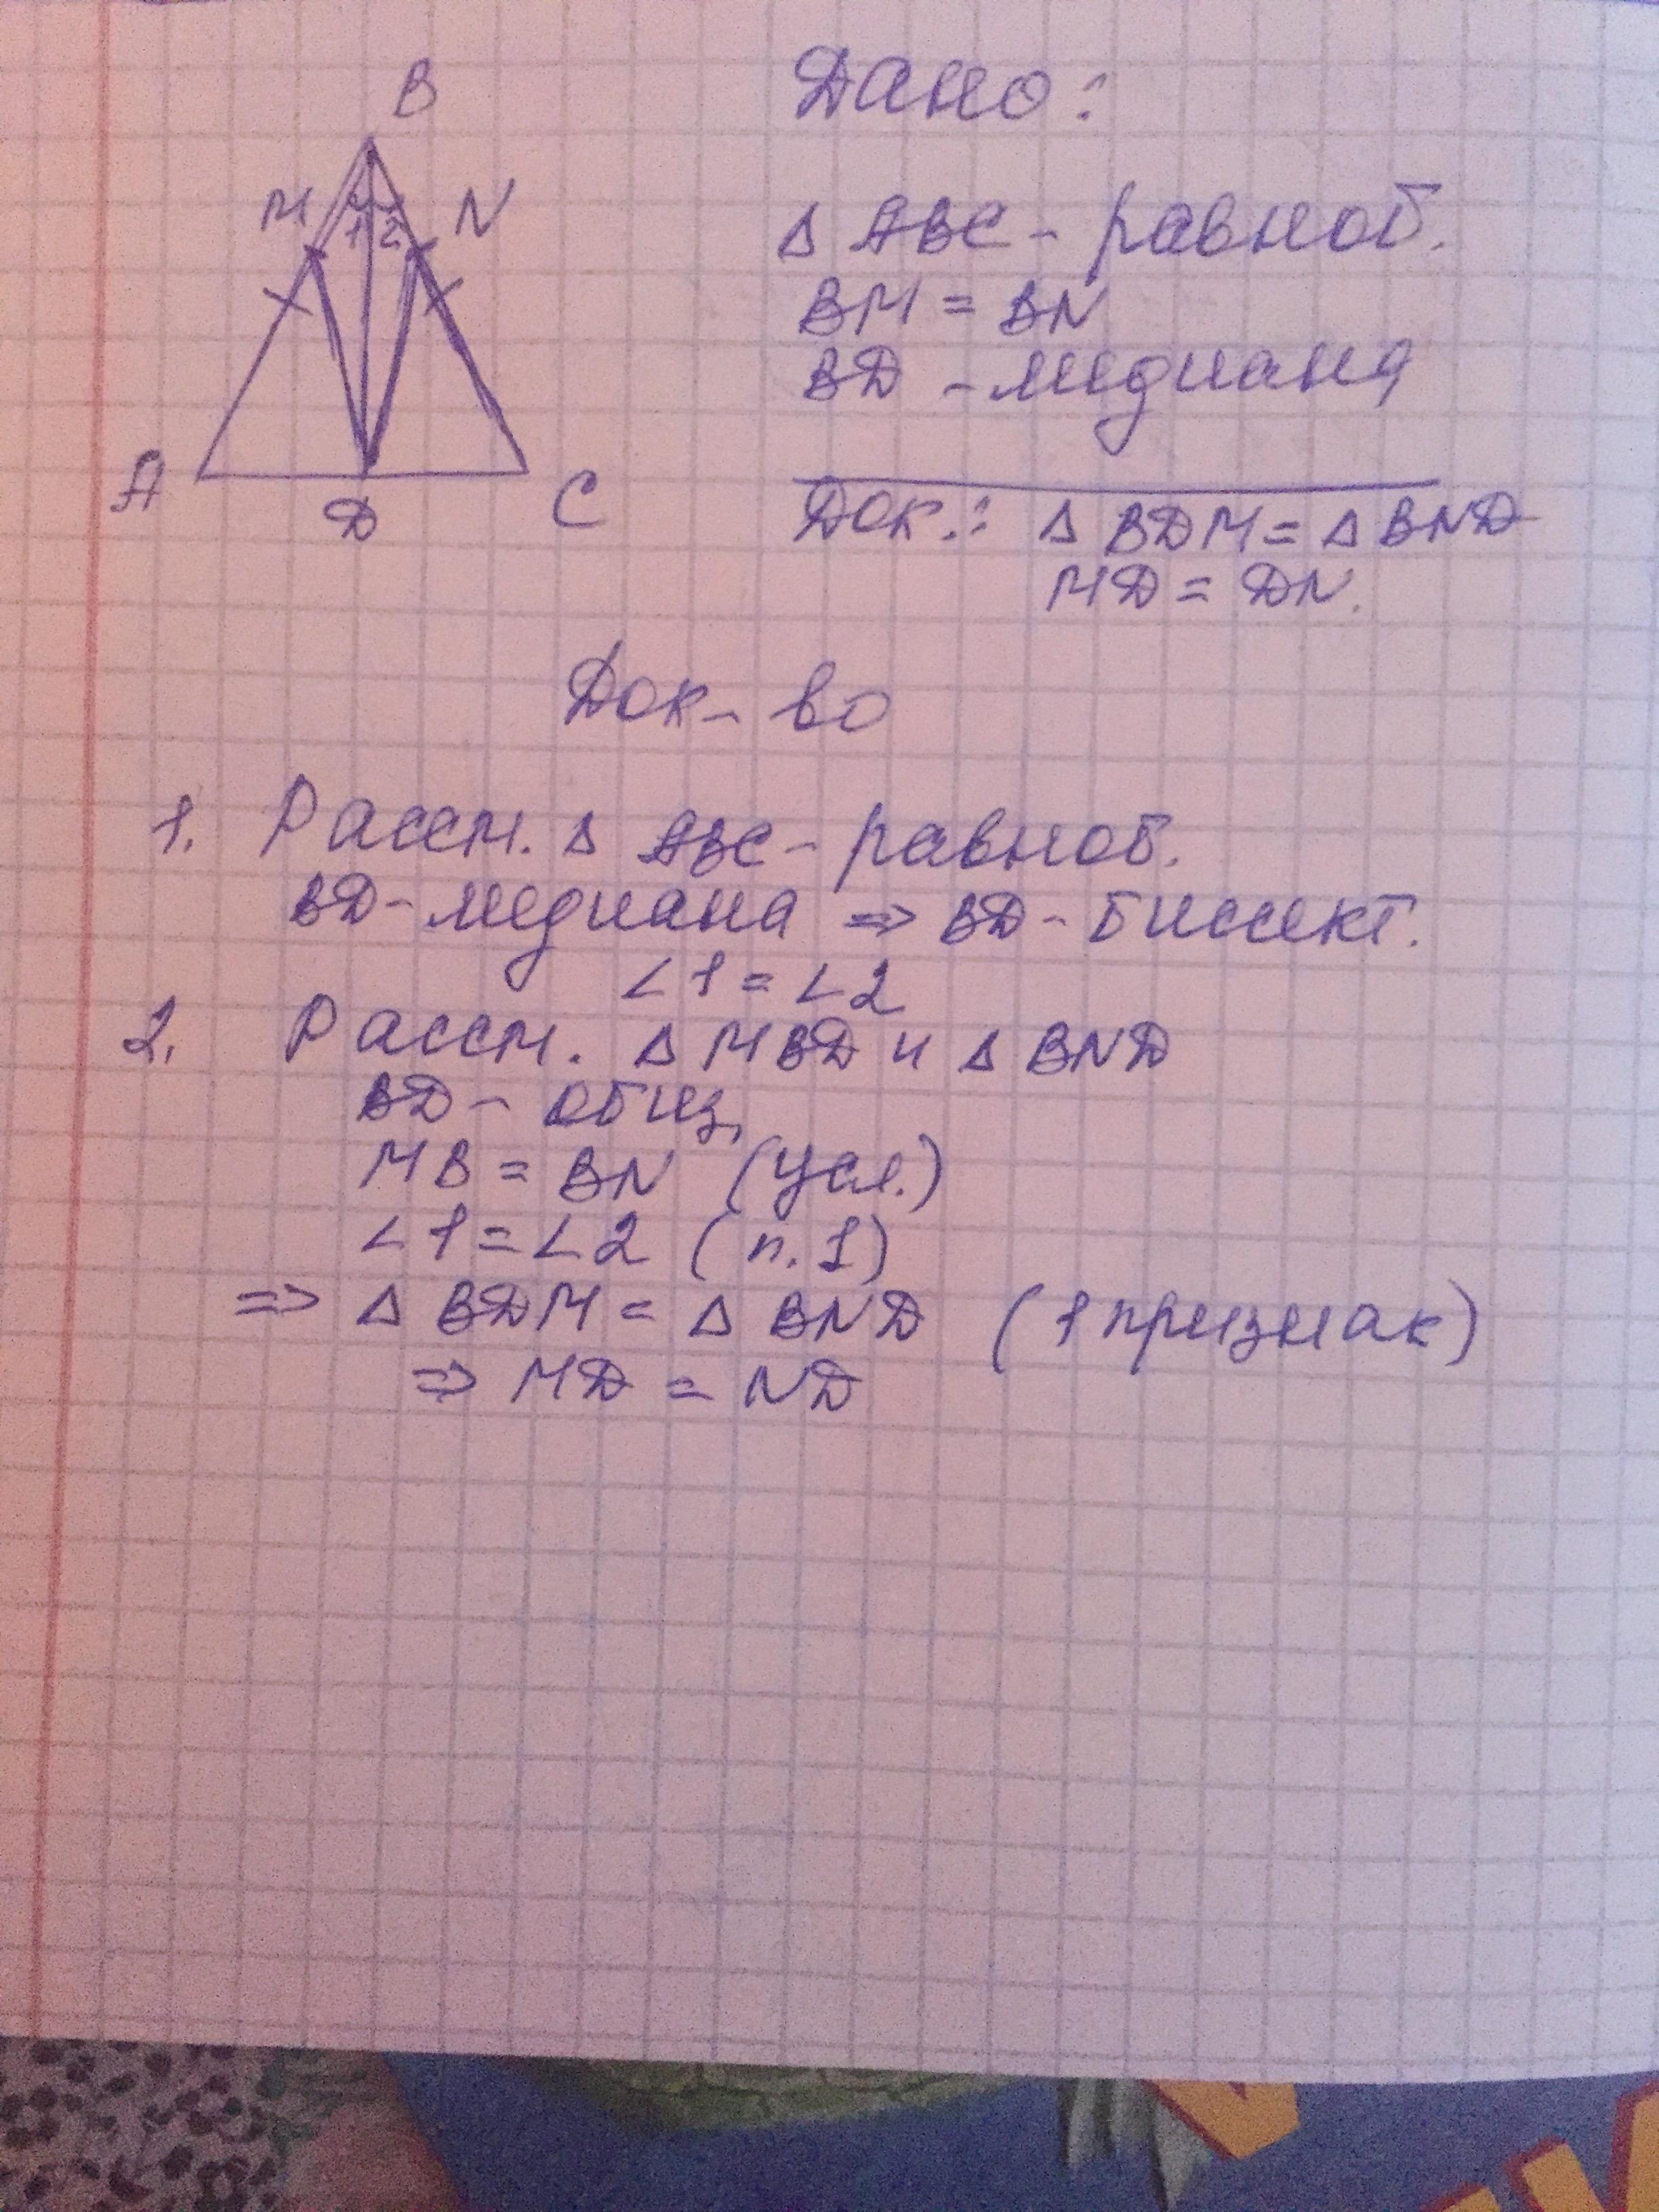 B
M 1 2 N
A D C
Дано:
Δ ABC - равноб.
BM = BN
BD - медиана
Док.: Δ BDM = Δ BND
MD = DN.
Док-во
1. Рассм. Δ ABC - равноб.
BD - медиана ⇒ BD - биссект.
∠1 = ∠2
2. Рассм. Δ MBD и Δ BND
BD - общ,
MB = BN (усл.)
∠1 = ∠2 (п.1)
⇒ Δ BDM = Δ BND (1 признак)
⇒ MD = ND